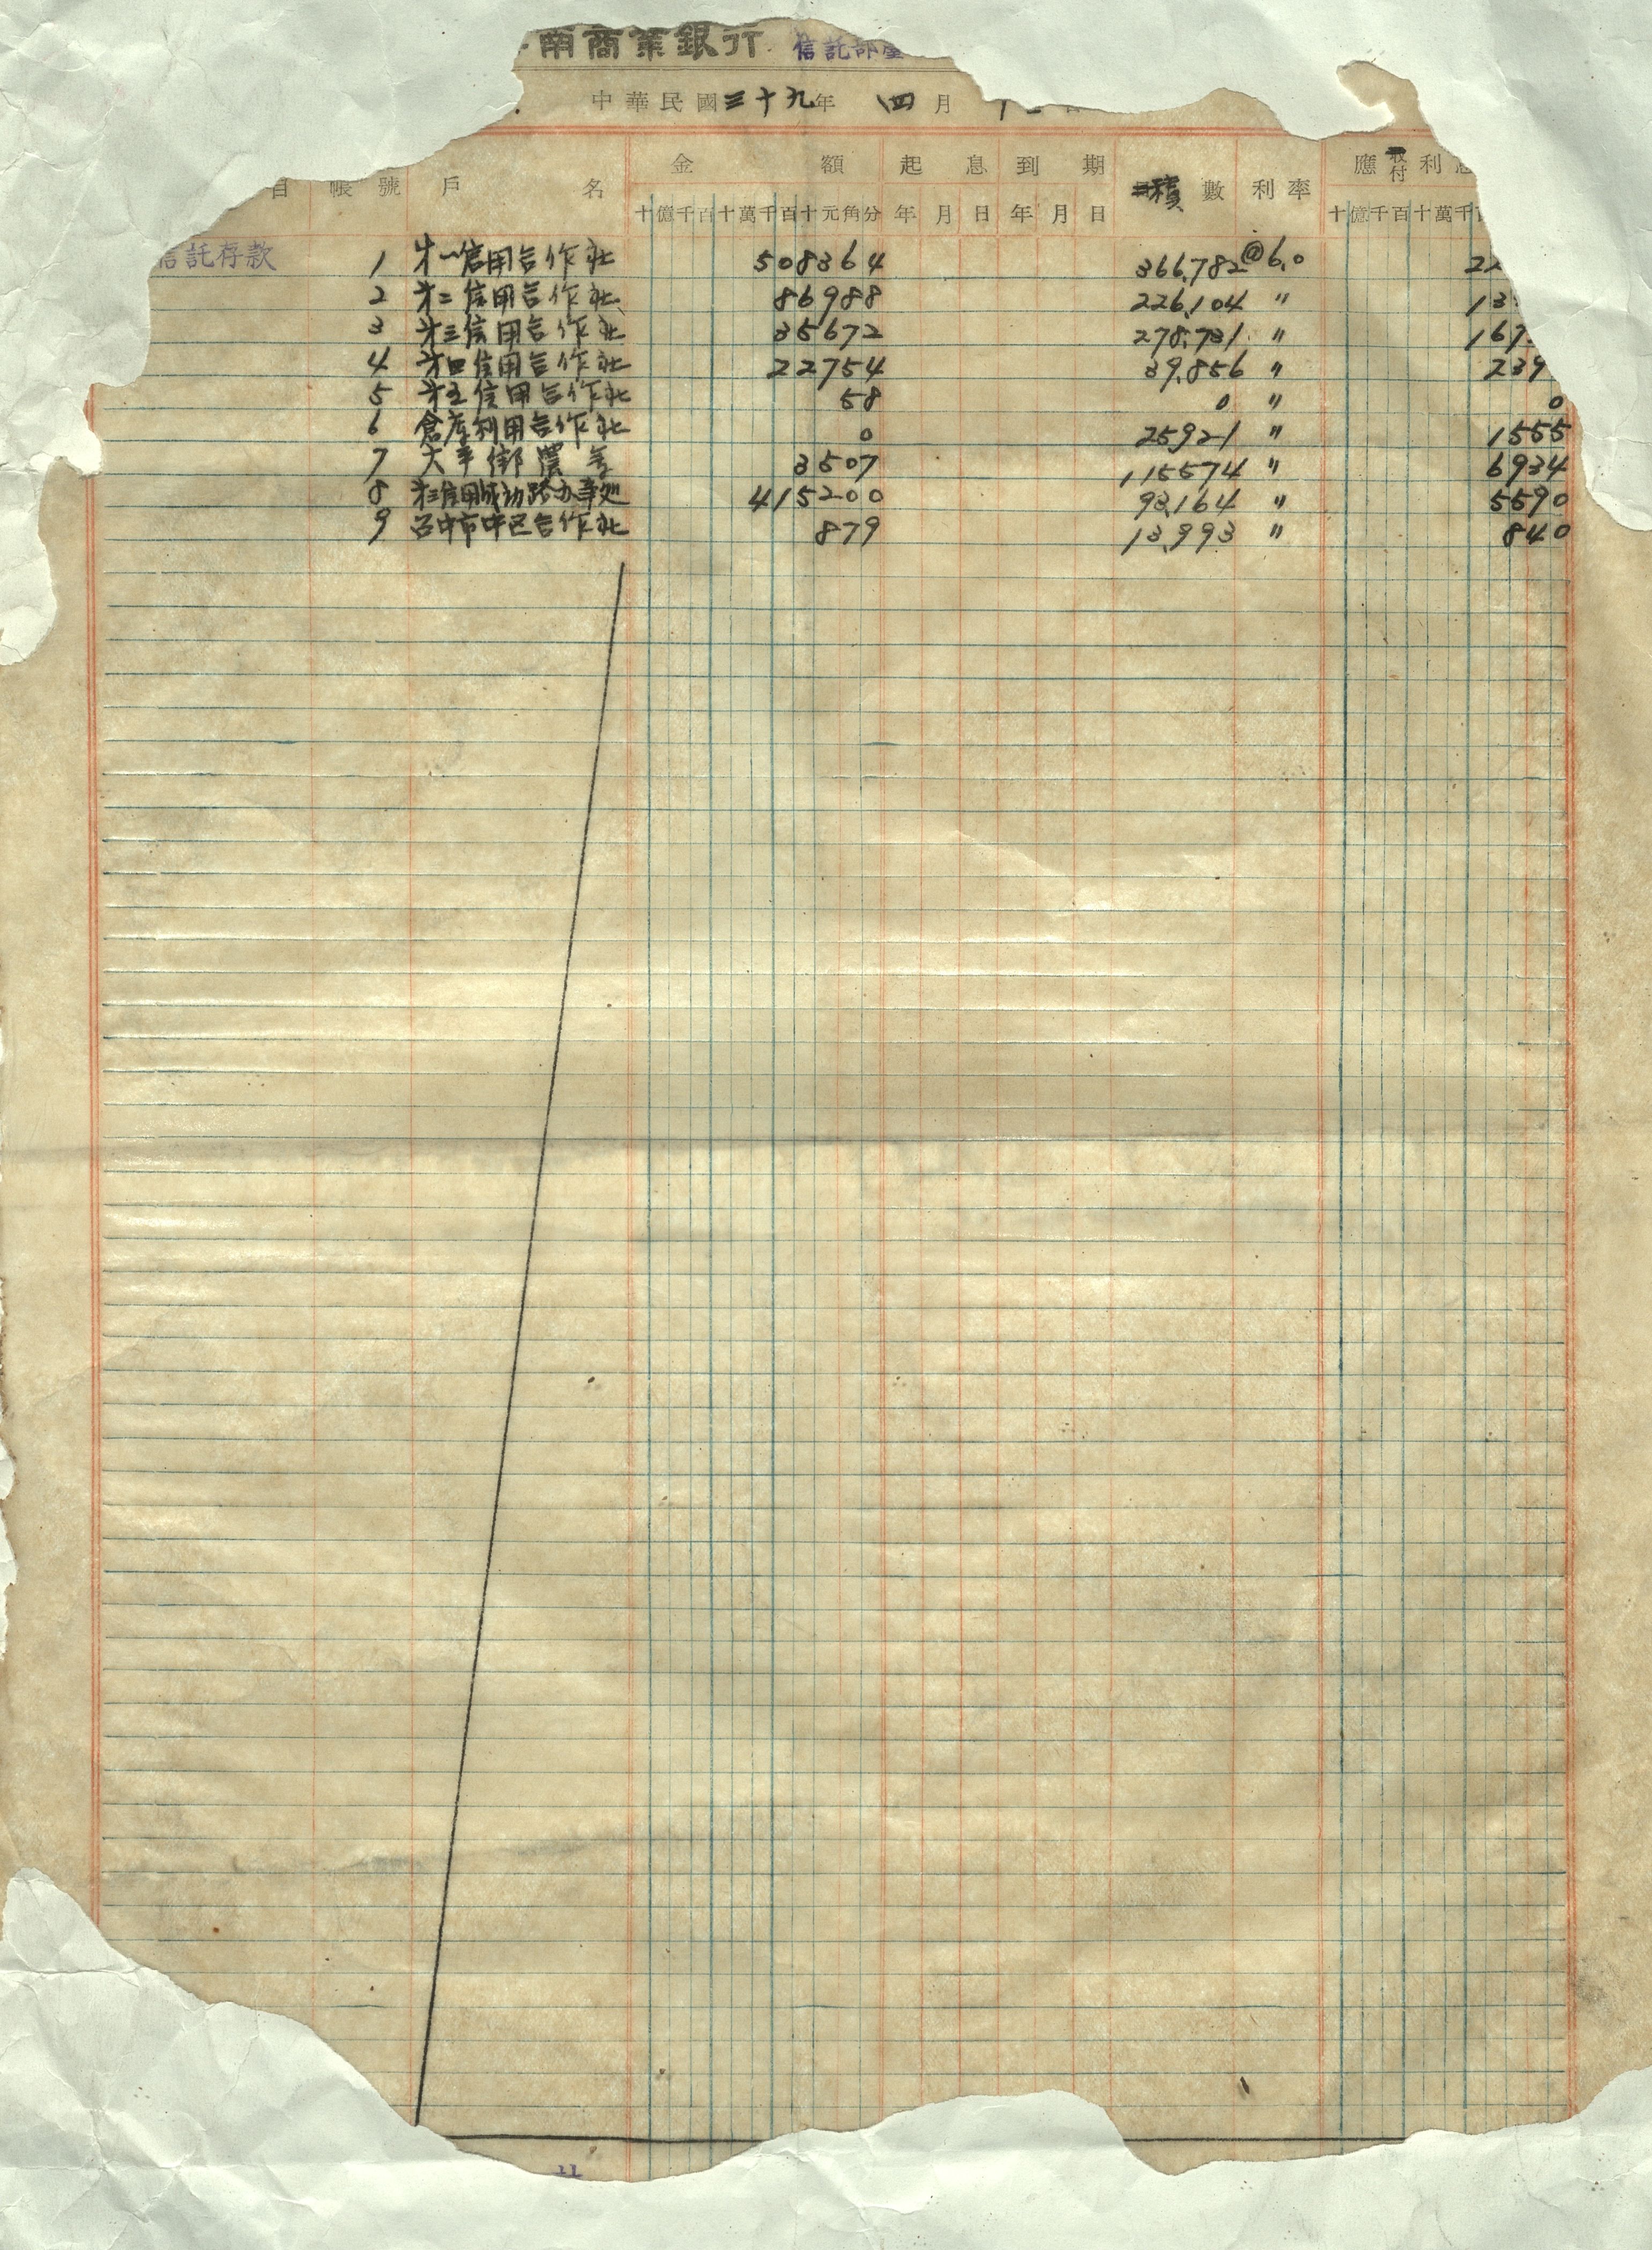 南商業銀行 信託部
中華民國三十九年 四月
金 額 起 息 到 期 應收付利息
目 帳號 戶 名 積數 利率
十億千百十萬千百十元角分 年 月 日 年 月 日 十億千百十萬千
信託存款 1 才一信用合作社 508364 366,782 @6.0 22
2 才二信用合作社 86988 226,104 〃 13
3 才三信用合作社 35672 278,731 〃 167
4 才四信用合作社 22754 39,856 〃 239
5 才五信用合作社 58 0 〃 0
6 倉庫利用合作社 0 25921 〃 1555
7 大平街農会 3507 115574 〃 6934
8 才三信用成功路办事処 415200 93,164 〃 5590
9 台中市中区合作社 879 13,993 〃 840